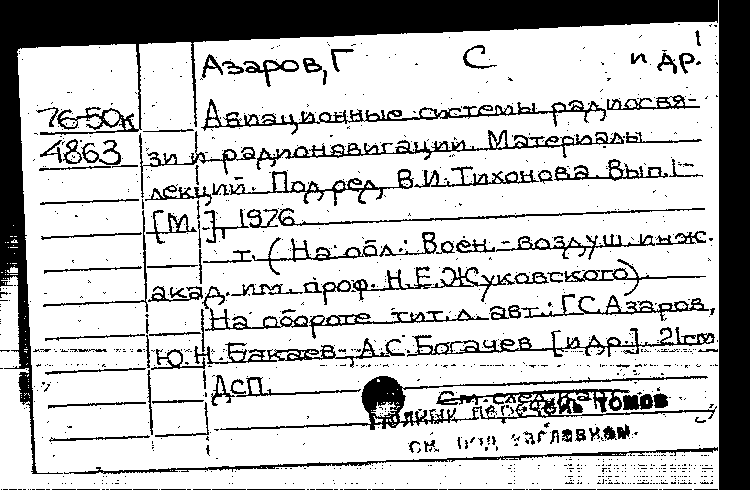 Азаров, Г С и др.
76-50к
4863
Авиационные системы радиосвя-
зи и радионавигации. Материалы
лекций. Под ред. В.И. Тихонова. Вып. 1-
[М.], 1976.
т. (На обл.: Воен.-воздуш. инж.
акад. им. проф. Н.Е. Жуковского).
На обороте тит. л. авт.: Г.С. Азаров,
Ю.Н. Бакаев, А.С. Богачев [и др.]. 21см
ДСП.
См. след. карт.
Полный перечень томов
см. под заглавием.